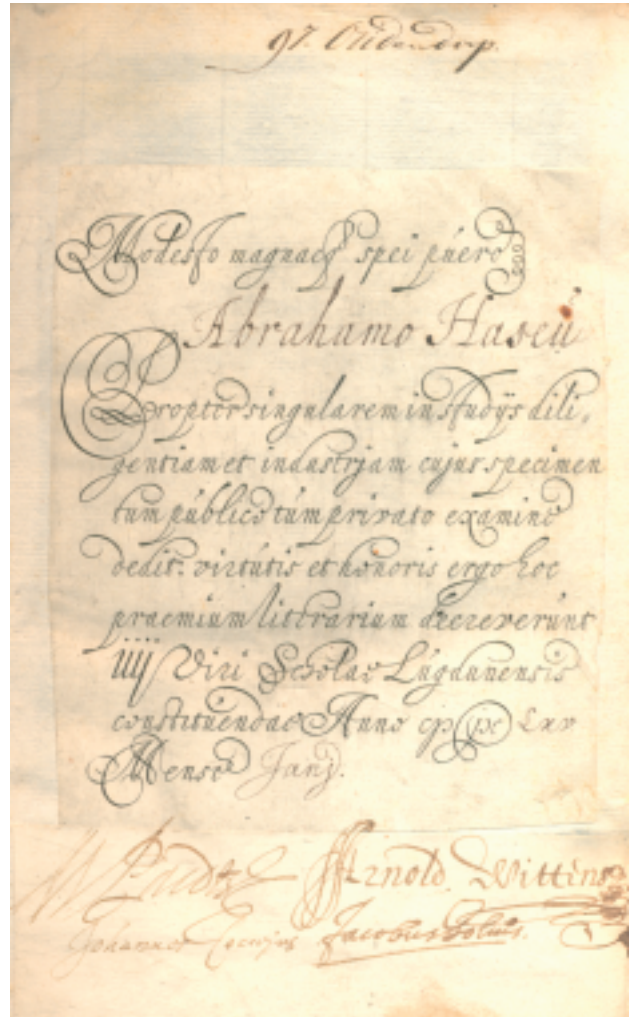 97. Oldendorp.
Modesto magnaeq3 spei puero
Abrahamo Haseu
Propter singularem in studijs dili,
gentiam et industrjam cujus specimen
tum publico tum privato examine
dedit: virtutis et honoris ergo hoc
praemium litterarium decreverunt
iiij Viri Scholae Lugdunensis
constituendae Anno cIɔ Iɔc Lxv
Mense Janj.
Arnold. Wittens
Johannes Jacobus